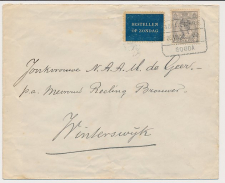 BESTELLEN
OP ZONDAG
GOUDA
Jonkvrouwe N.A.A.M. de Geer.-
p/a Mevrouw Roeling Brouwer.
Winterswijk